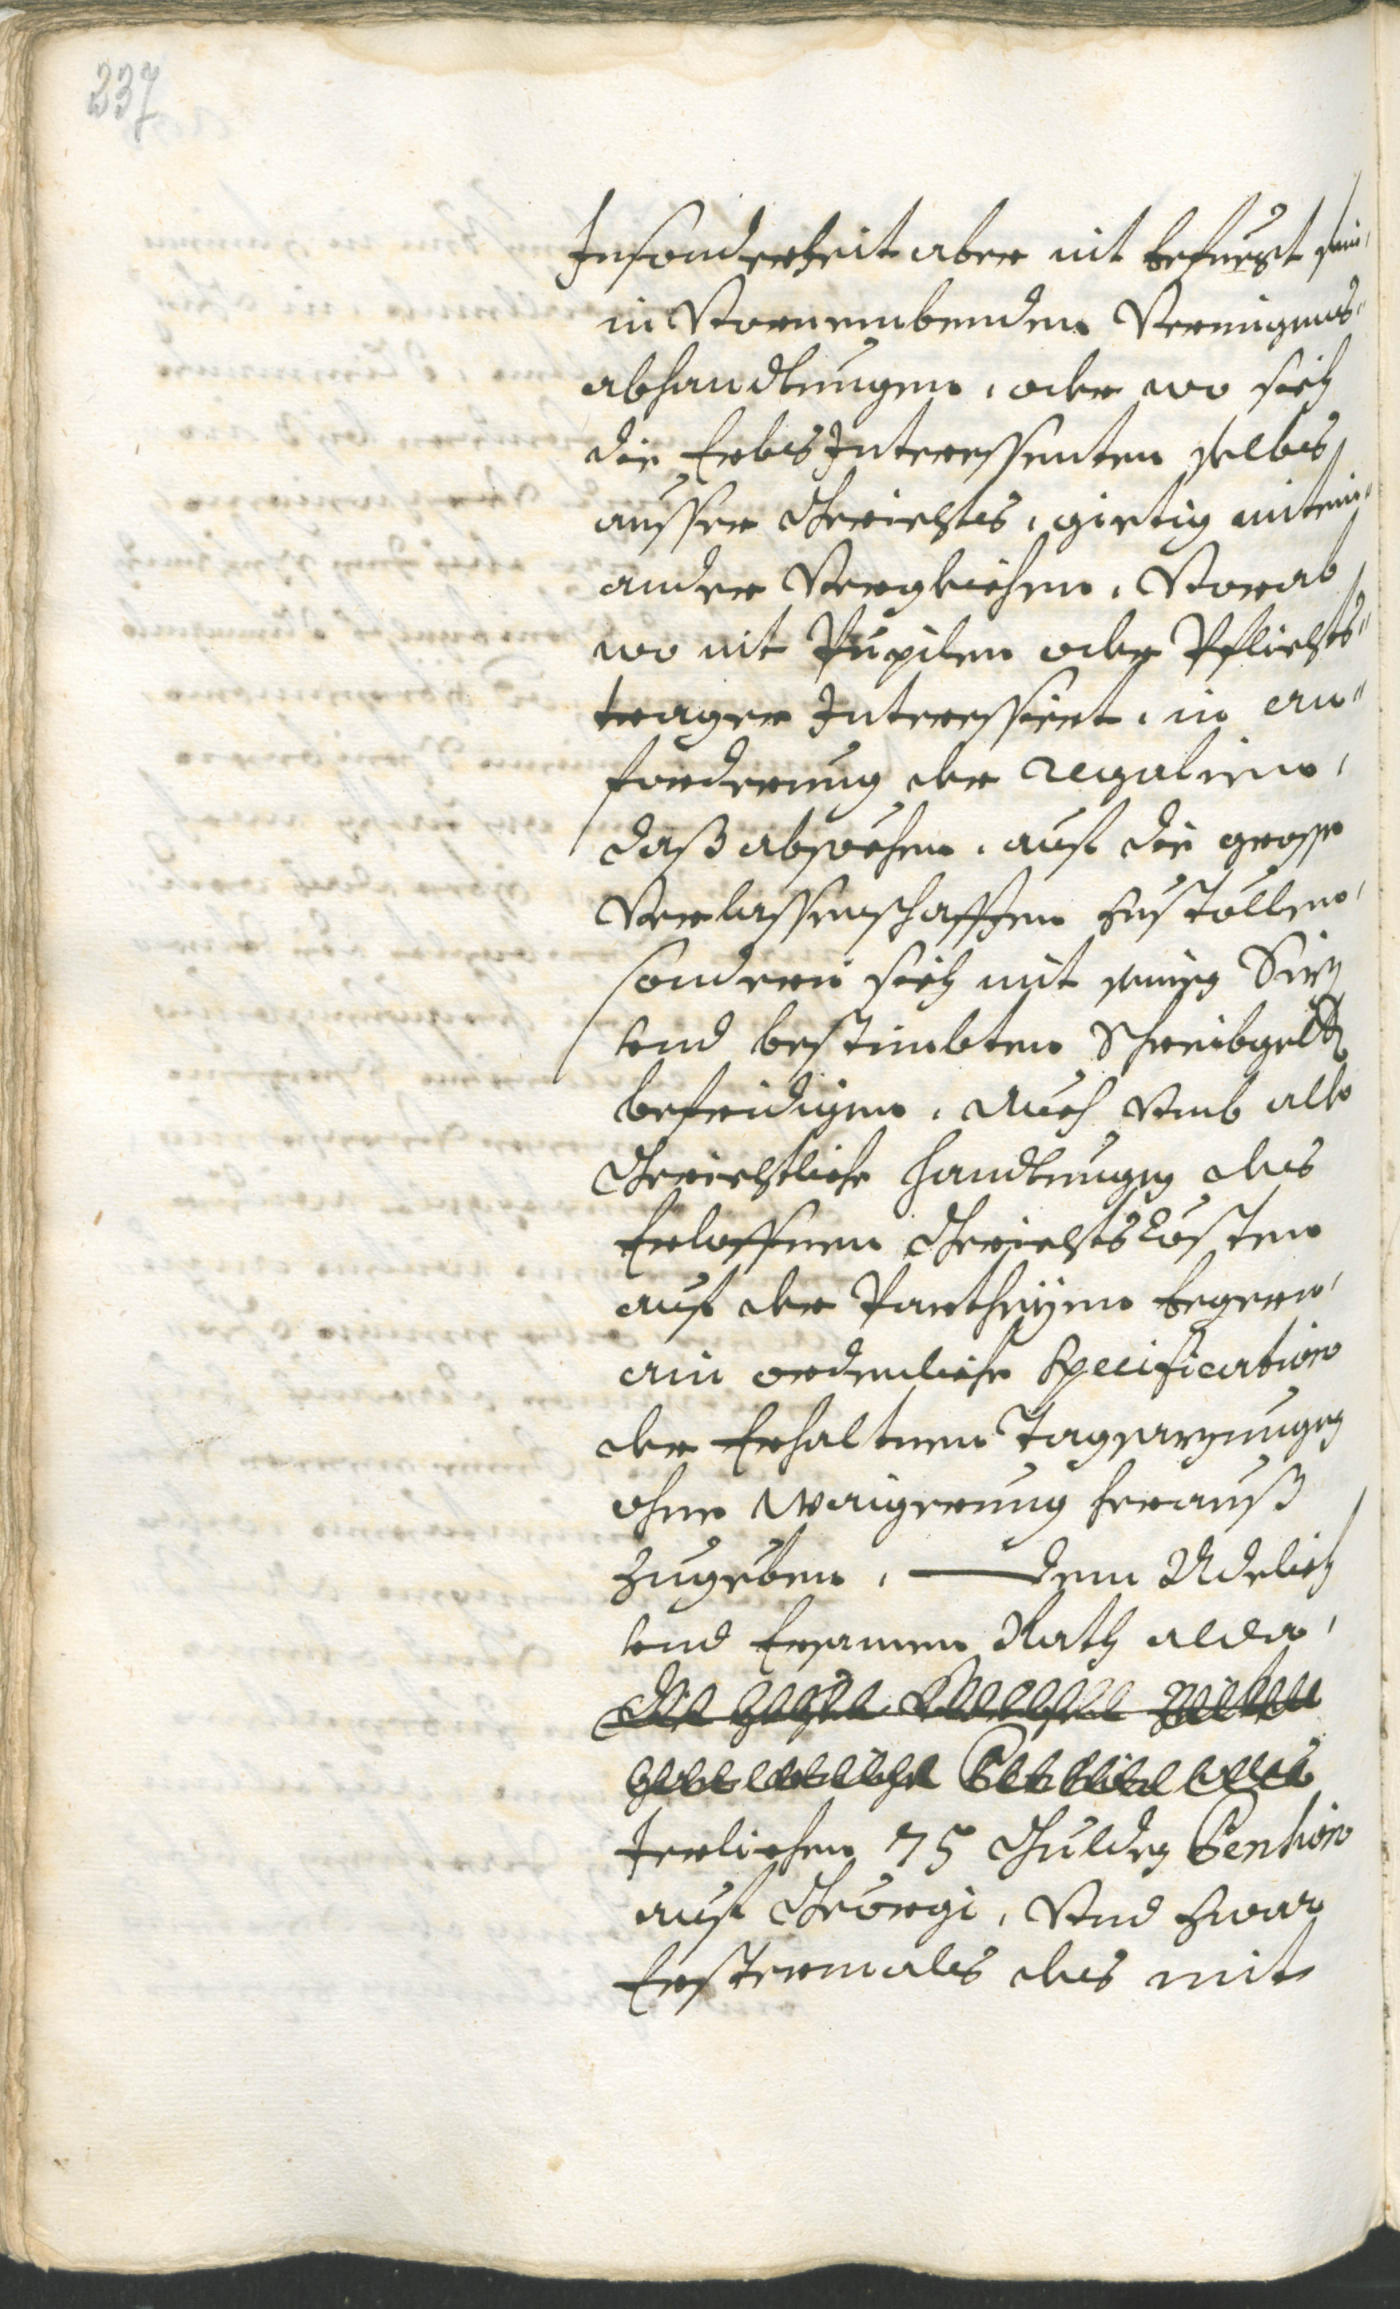 237
Insonderheit aber nit befuegt sein,
in Vornembenden Vermigens-
abhandlungen, oder wo sich
die Erbs Interessenten selbs
ausser Gerichts, gietig mitein-
ander Vergleichen, Vorab
wo nit Pupilen oder Pflichts-
trager Interessiert, in an-
forderung der Regalien,
daß absechen, auf die grosse
Verlassenschafften zustöllen,
sondern sich mit seinem
und bestimbten Schreibgelt
befridigen, Auch Vmb alle
Gerichtliche handlungen des
Erloffnen Gerichts Cossten
auf der Partheyen begern,
ain ordenliche Specification
der Erhaltnen Tagsazungen
ohne Waigerung herauß
zugeben, — dem Adelich
und Ersamen Rath alda,
Jerlichen 75 Gulden Pension
auf Georgi, Vnd zwar
Erstermals des mit